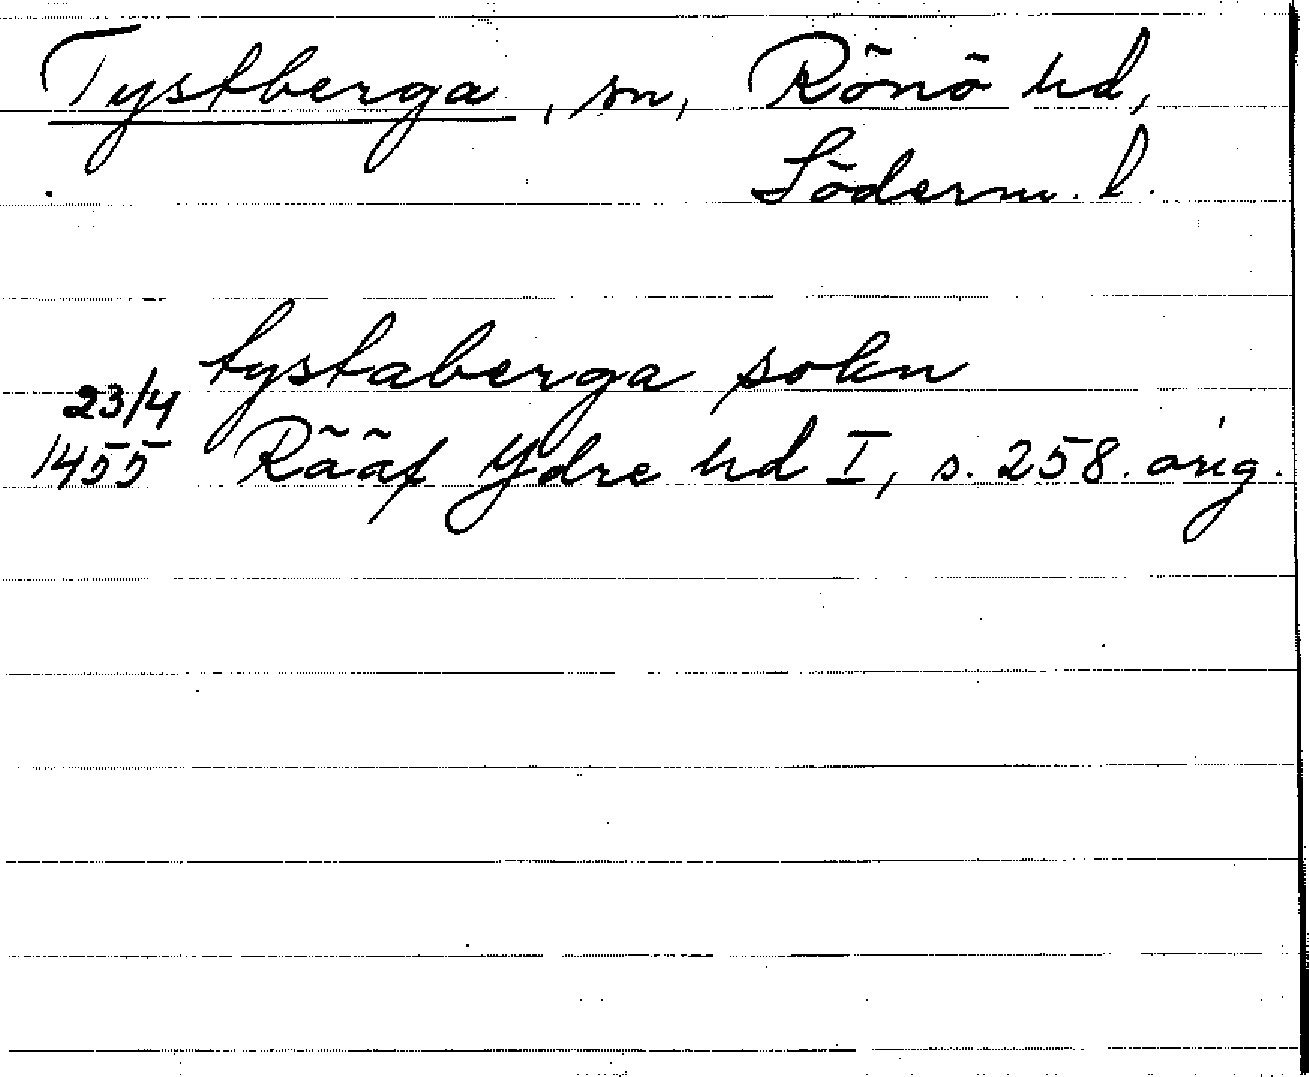 Tystberga, sn, Rönö hd,
Söderm. l.
tystaberga sokn
23/4
1455 Rääf Ydre hd I, s. 258. orig.